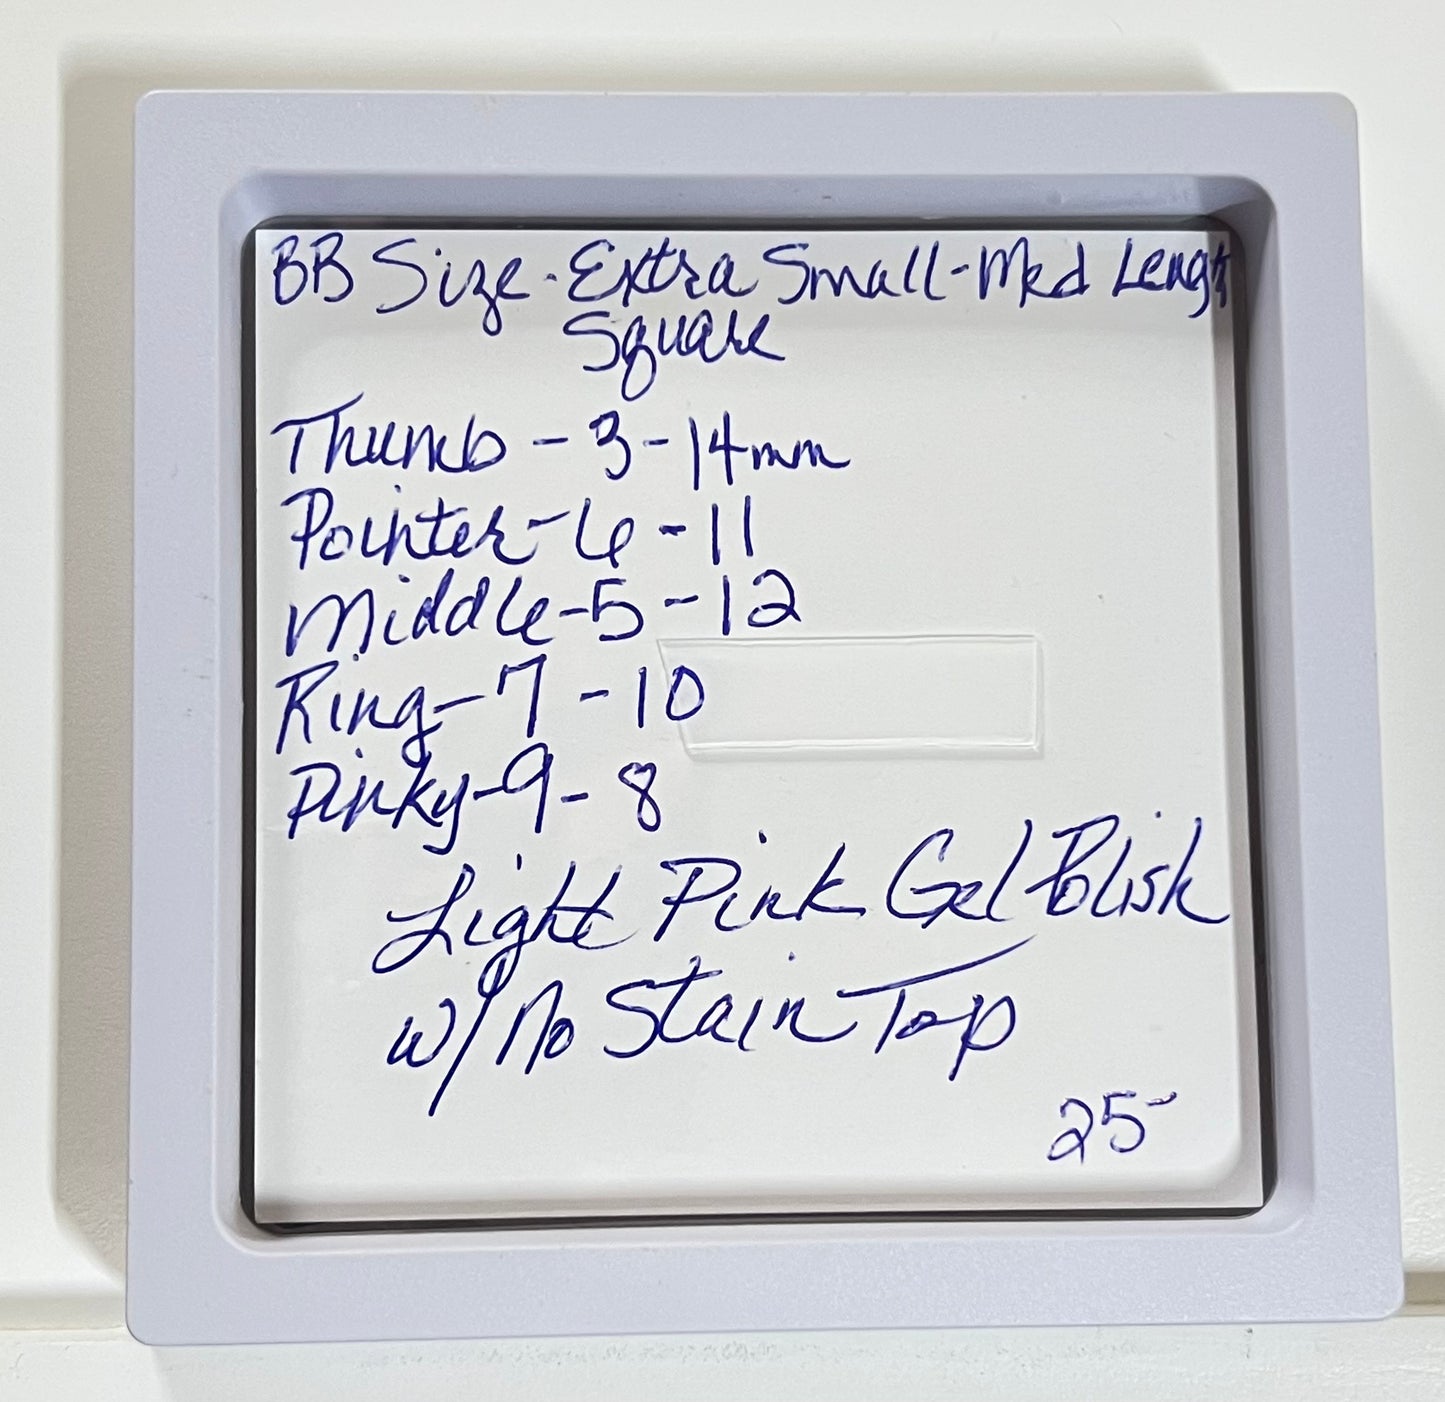 BB Size - Extra Small - Med Lengt
Square
Thumb - 3 - 14mm
Pointer - 6 - 11
Middle - 5 - 12
Ring - 7 - 10
Pinky - 9 - 8
Light Pink Gel Polish
w/ No Stain Top
25-